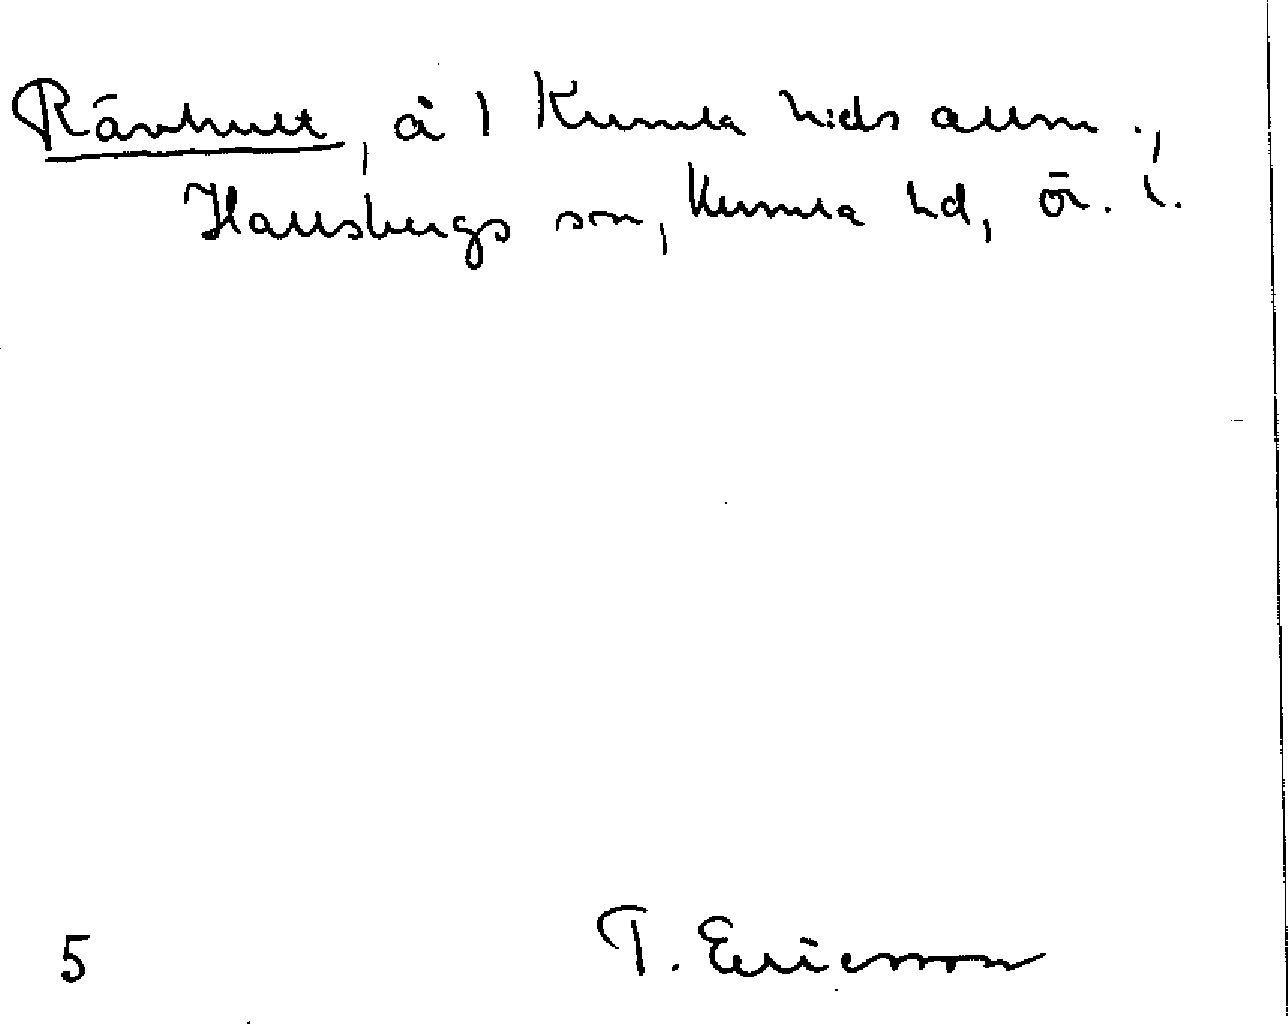 Rävhult, å 1 Kumla hds allm.,
Hallsbergs sn, Kumla hd, ö. l.
5
T. Ericsson